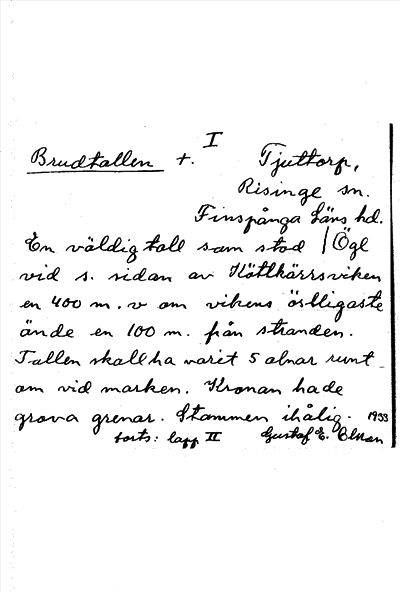 I
Brudtallen t. Tjuttorp,
Risinge sn.
Finspånga Läns hd.
En väldig tall som stod / Ögl
vid s. sidan av Kättkärrsviken
en 400 m. v om vikens östligaste
ände en 100 m. från stranden.
Tallen skall ha varit 5 alnar runt
om vid marken. Kronan hade
grova grenar. Stammen ihålig. 1933
forts: lapp II Gustaf E.